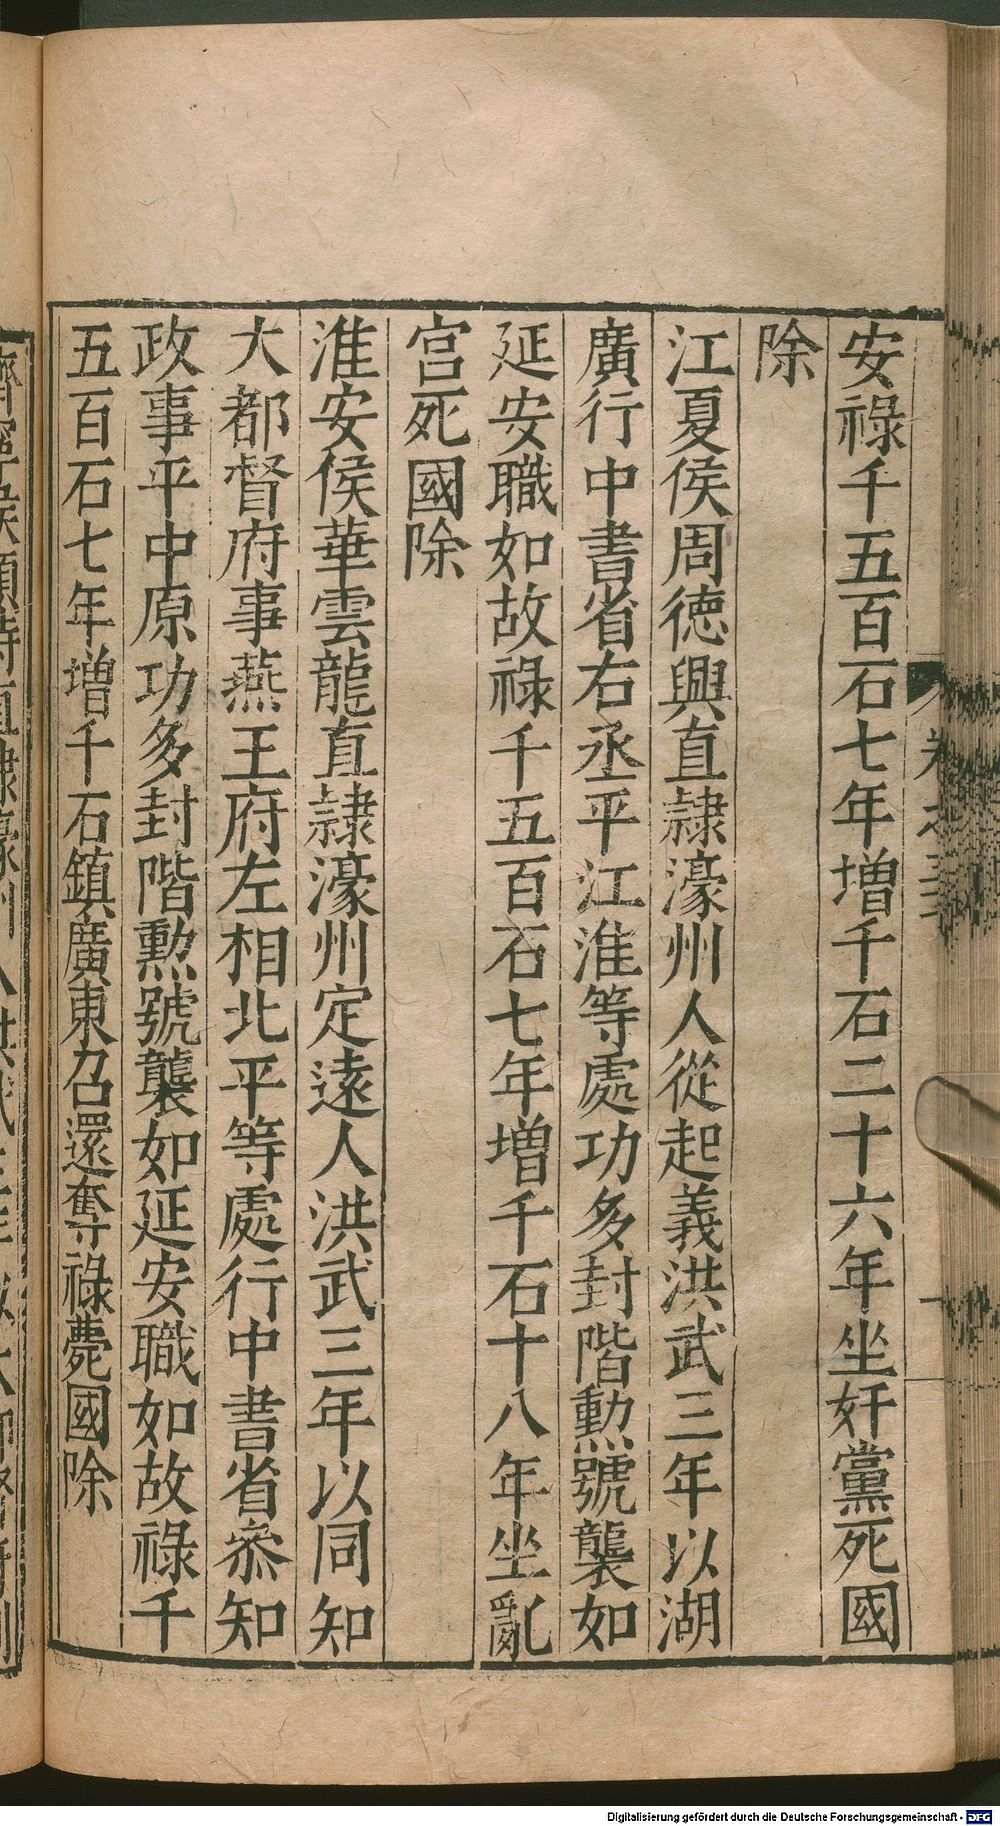 安祿千五百石七年增千石二十六年坐奸黨死國
除
江夏侯周德興直隷濠州人從起義洪武三年以湖
廣行中書省右丞平江淮等處功多封階勲號襲如
延安職如故祿千五百石七年增千石十八年坐亂
宮死國除
淮安侯華雲龍直隷濠州定遠人洪武三年以同知
大都督府事燕王府左相北平等處行中書省叅知
政事平中原功多封階勲號襲如延安職如故祿千
五百石七年增千石鎮廣東召還奪祿薨國除
Digitalisierung gefördert durch die Deutsche Forschungsgemeinschaft - DFG